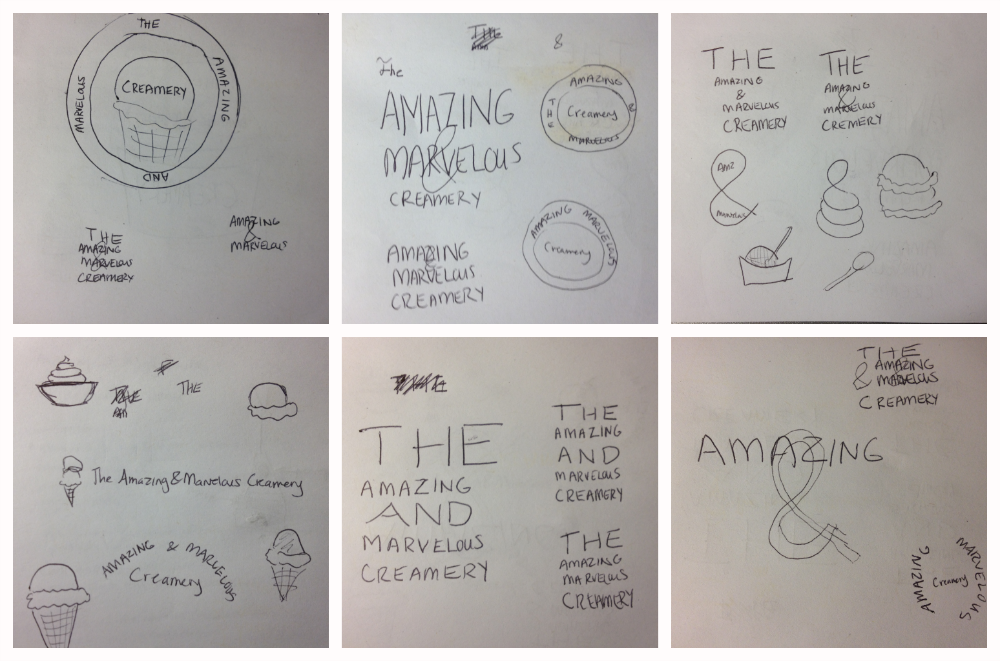 THE
AMAZING
MARVELOUS
CREAMERY
AND
THE
AMAZING
&
MARVELOUS
CREAMERY
AMAZING
&
MARVELOUS
THE
&
The
AMAZING
&
MARVELOUS
CREAMERY
AMAZING
THE
Creamery
&
MARVELOUS
AMAZING MARVELOUS
Creamery
AMAZING
&
MARVELOUS
CREAMERY
THE
AMAZING
&
MARVELOUS
CREAMERY
THE
AMAZING
&
MARVELOUS
CREMERY
AMZ
&
&
THE
The Amazing & Marvelous Creamery
AMAZING & MARVELOUS
Creamery
THE
AMAZING
AND
MARVELOUS
CREAMERY
THE
AMAZING
AND
MARVELOUS
CREAMERY
THE
AMAZING
MARVELOUS
CREAMERY
THE
AMAZING
& MARVELOUS
CREAMERY
AMAZING
&
AMAZING MARVELOUS
Creamery